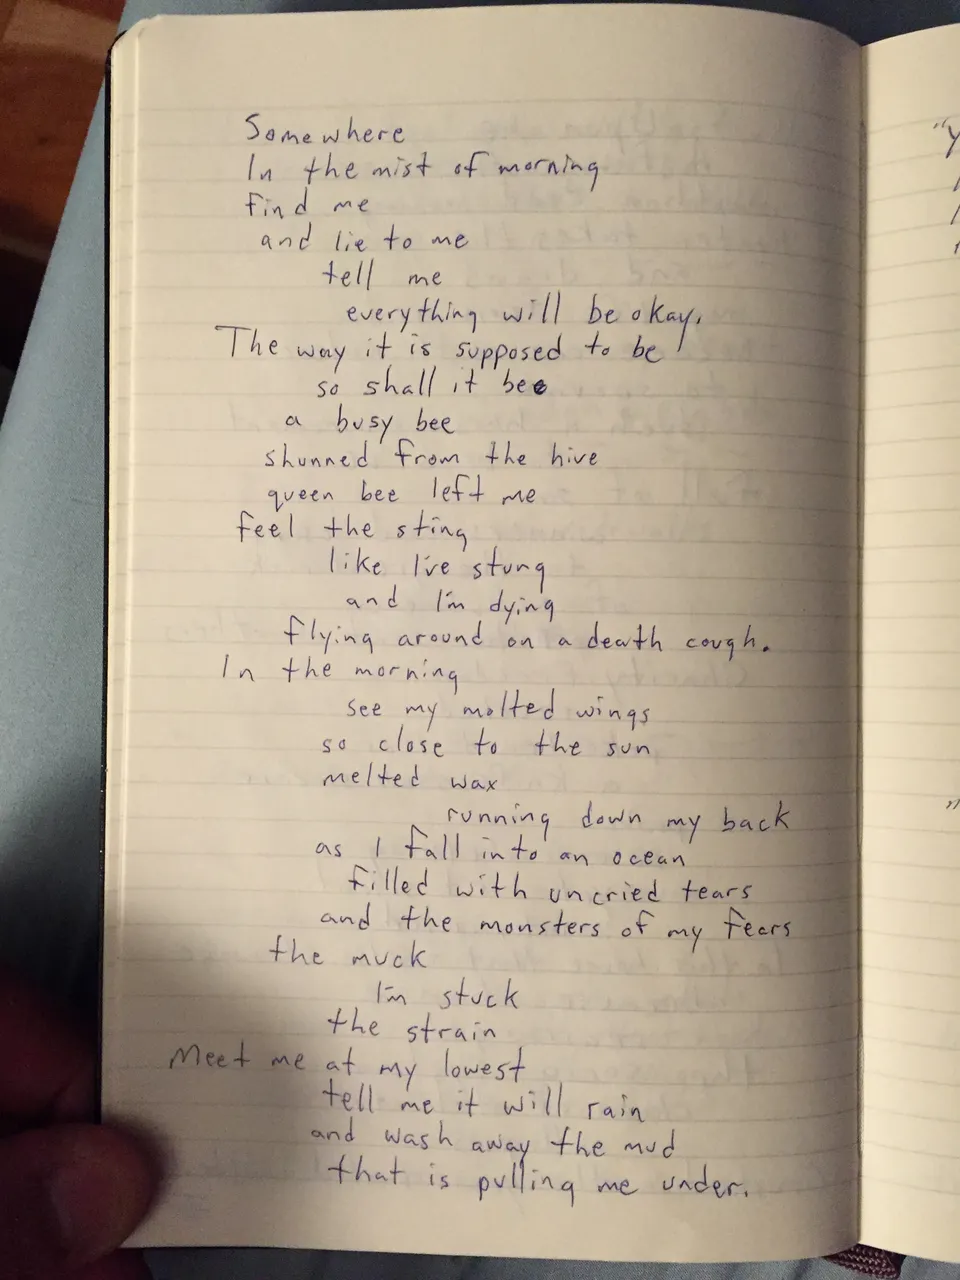 Somewhere
In the mist of morning
find me
and lie to me
tell me
everything will be okay,
The way it is supposed to be
so shall it bee
a busy bee
shunned from the hive
queen bee left me
feel the sting
like I've stung
and I'm dying
flying around on a death cough.
In the morning
see my molted wings
so close to the sun
melted wax
running down my back
as I fall into an ocean
filled with uncried tears
and the monsters of my fears
the muck
I'm stuck
the strain
Meet me at my lowest
tell me it will rain
and wash away the mud
that is pulling me under.
"Y
"